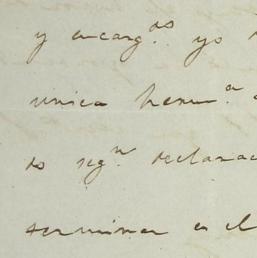 y encarg.do yo
unica herm.a
do seg.n declarac
terminar en el